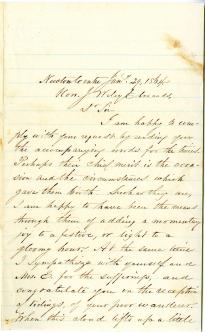 Newton Centre, Jan'y 29, 1864
Hon. J. Wiley Edmands,
Dr Sir,
I am happy to com-
ply with your request by sending you
the accompanying words for the
Perhaps their chief merit is the occa-
sion and the circumstances which
gave them birth. Such as they are,
I am happy to have been the means
through them of adding a momentary
joy to a festive, or light to a
gloomy hour. At the same time
I sympathize with yourself and
Mrs. E. for the sufferings, and
congratulate you on the reception
of tidings, of your poor wanderer.
When this cloud lifts up a little